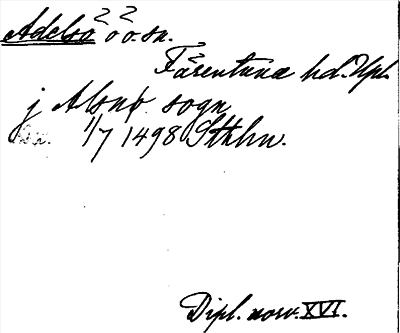 Adelsö öö. sn.
Färentuna hd. Upl.
j Alsnø sogn
1/7 1498 Sthlm.
Dipl. norv. XVI.